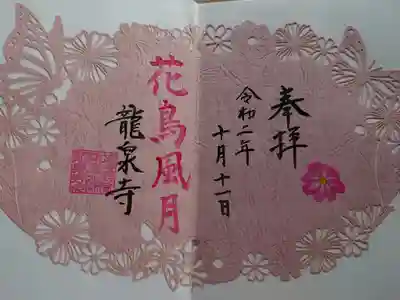 奉拝
令和二年
十月十一日
花鳥風月
龍泉寺